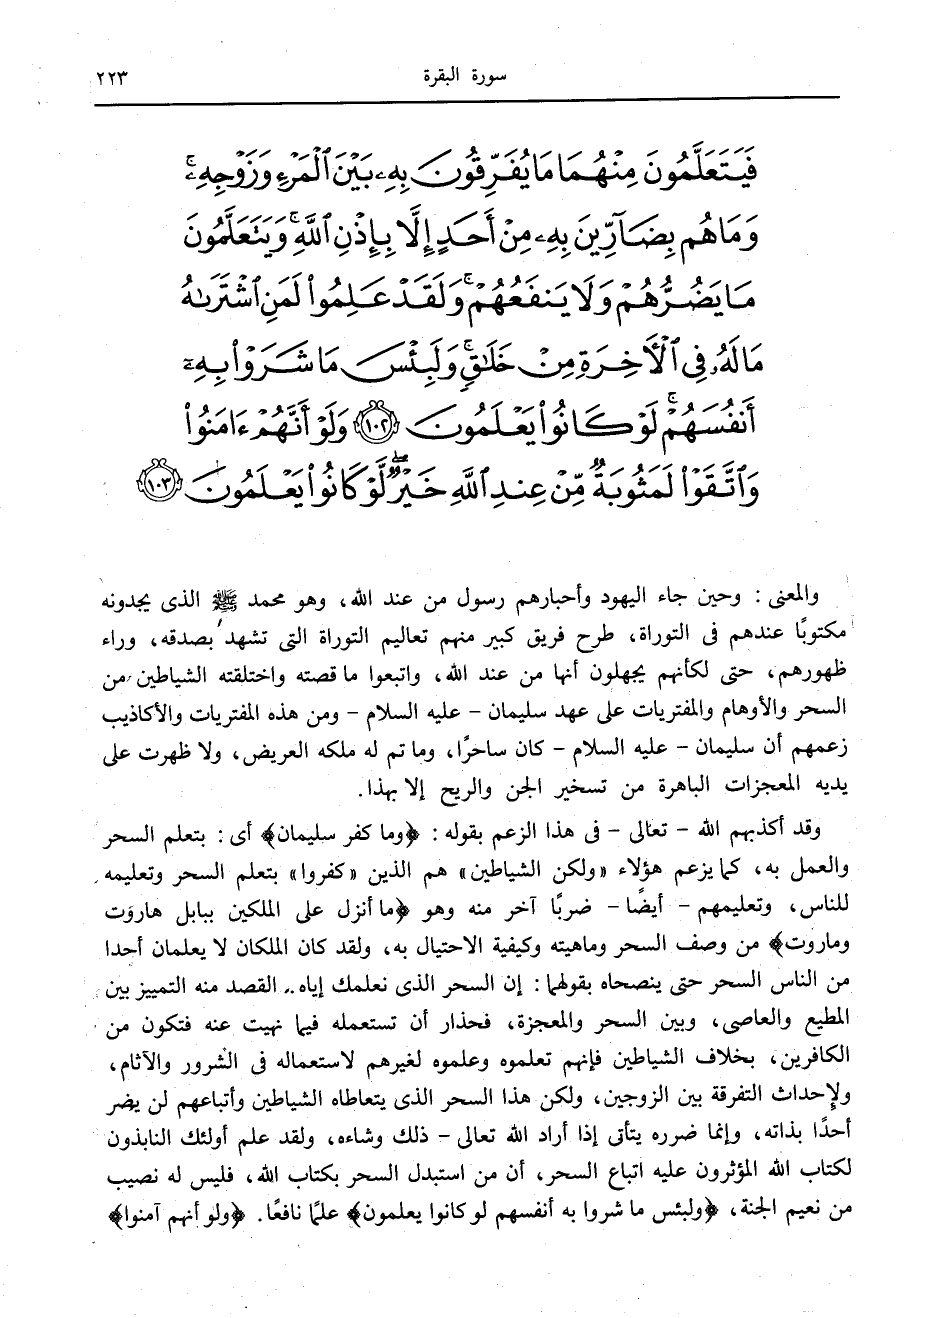 سورة البقرة ٢٢٣
فَيَتَعَلَّمُونَ مِنْهُمَا مَا يُفَرِّقُونَ بِهِۦ بَيْنَ ٱلْمَرْءِ وَزَوْجِهِۦۚ
وَمَا هُم بِضَآرِّينَ بِهِۦ مِنْ أَحَدٍ إِلَّا بِإِذْنِ ٱللَّهِۚ وَيَتَعَلَّمُونَ
مَا يَضُرُّهُمْ وَلَا يَنفَعُهُمْۚ وَلَقَدْ عَلِمُوا۟ لَمَنِ ٱشْتَرَىٰهُ
مَا لَهُۥ فِى ٱلْأَخِرَةِ مِنْ خَلَٰقٍۚ وَلَبِئْسَ مَا شَرَوْا۟ بِهِۦٓ
أَنفُسَهُمْۚ لَوْ كَانُوا۟ يَعْلَمُونَ ١٠٢ وَلَوْ أَنَّهُمْ ءَامَنُوا۟
وَٱتَّقَوْا۟ لَمَثُوبَةٌ مِّنْ عِندِ ٱللَّهِ خَيْرٌۖ لَّوْ كَانُوا۟ يَعْلَمُونَ ١٠٣
والمعنى : وحين جاء اليهود وأحبارهم رسول من عند الله، وهو محمد ﷺ الذى يجدونه
مكتوبًا عندهم فى التوراة، طرح فريق كبير منهم تعاليم التوراة التى تشهد بصدقه، وراء
ظهورهم، حتى لكأنهم يجهلون أنها من عند الله، واتبعوا ما قصته واختلقته الشياطين من
السحر والأوهام والمفتريات على عهد سليمان – عليه السلام – ومن هذه المفتريات والأكاذيب
زعمهم أن سليمان – عليه السلام – كان ساحرًا، وما تم له ملكه العريض، ولا ظهرت على
يديه المعجزات الباهرة من تسخير الجن والريح إلا بهذا.
وقد أكذبهم الله – تعالى – فى هذا الزعم بقوله : ﴿وما كفر سليمان﴾ أى : بتعلم السحر
والعمل به، كما يزعم هؤلاء «ولكن الشياطين» هم الذين «كفروا» بتعلم السحر وتعليمه
للناس، وتعليمهم – أيضًا – ضربًا آخر منه وهو ﴿ما أنزل على الملكين ببابل هاروت
وماروت﴾ من وصف السحر وماهيته وكيفية الاحتيال به، ولقد كان الملكان لا يعلمان أحدا
من الناس السحر حتى ينصحاه بقولهما : إن السحر الذى نعلمك إياه.. القصد منه التمييز بين
المطيع والعاصى، وبين السحر والمعجزة، فحذار أن تستعمله فيما نهيت عنه فتكون من
الكافرين، بخلاف الشياطين فإنهم تعلموه وعلموه لغيرهم لاستعماله فى الشرور والآثام،
ولإحداث التفرقة بين الزوجين، ولكن هذا السحر الذى يتعاطاه الشياطين وأتباعهم لن يضر
أحدًا بذاته، وإنما ضرره يتأتى إذا أراد الله تعالى – ذلك وشاءه، ولقد علم أولئك النابذون
لكتاب الله المؤثرون عليه اتباع السحر، أن من استبدل السحر بكتاب الله، فليس له نصيب
من نعيم الجنة، ﴿ولبئس ما شروا به أنفسهم لو كانوا يعلمون﴾ علمًا نافعًا. ﴿ولو أنهم آمنوا﴾